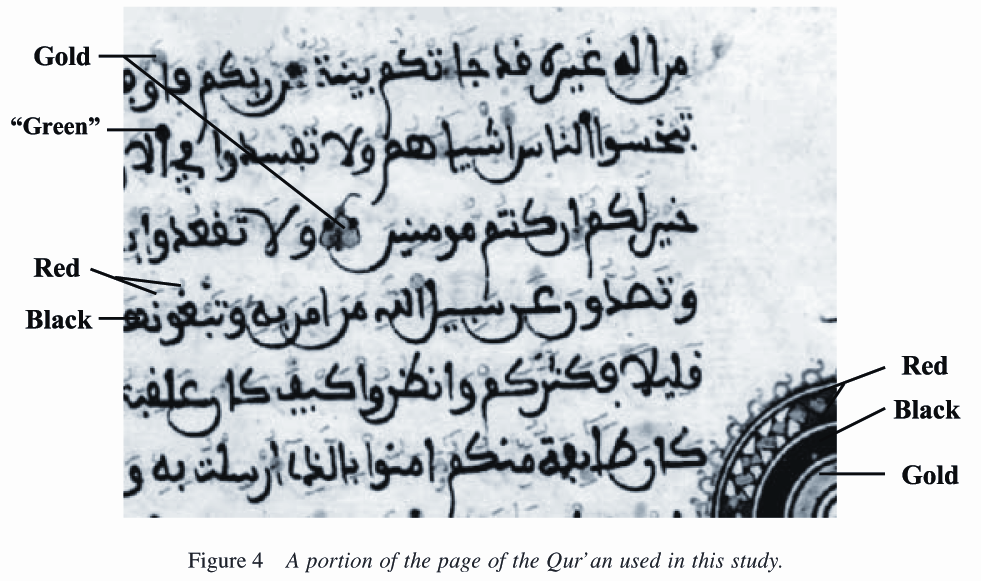 Gold
"Green"
Red
Black
من اله غيره قد جاتكم بينة من ربكم
تبخسوا الناس اشياهم ولا تفسدوا في
خير لكم ان كنتم مومنين ولا تقعدوا
وتصدون عن سبيل الله من امن به وتبغونها
قليلا فكثركم وانظروا كيف كان عقبة
كان طايفة منكم امنوا بالذي ارسلت به و
Red
Black
Gold
Figure 4 A portion of the page of the Qur'an used in this study.